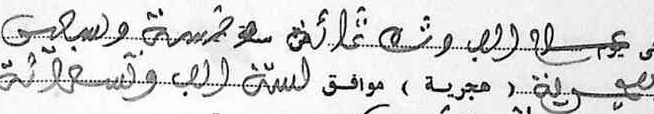 في يوم الف وثلاثمائة وخمسة وسبعين
( هجرية ) موافق لسنة الف وتسعمائة